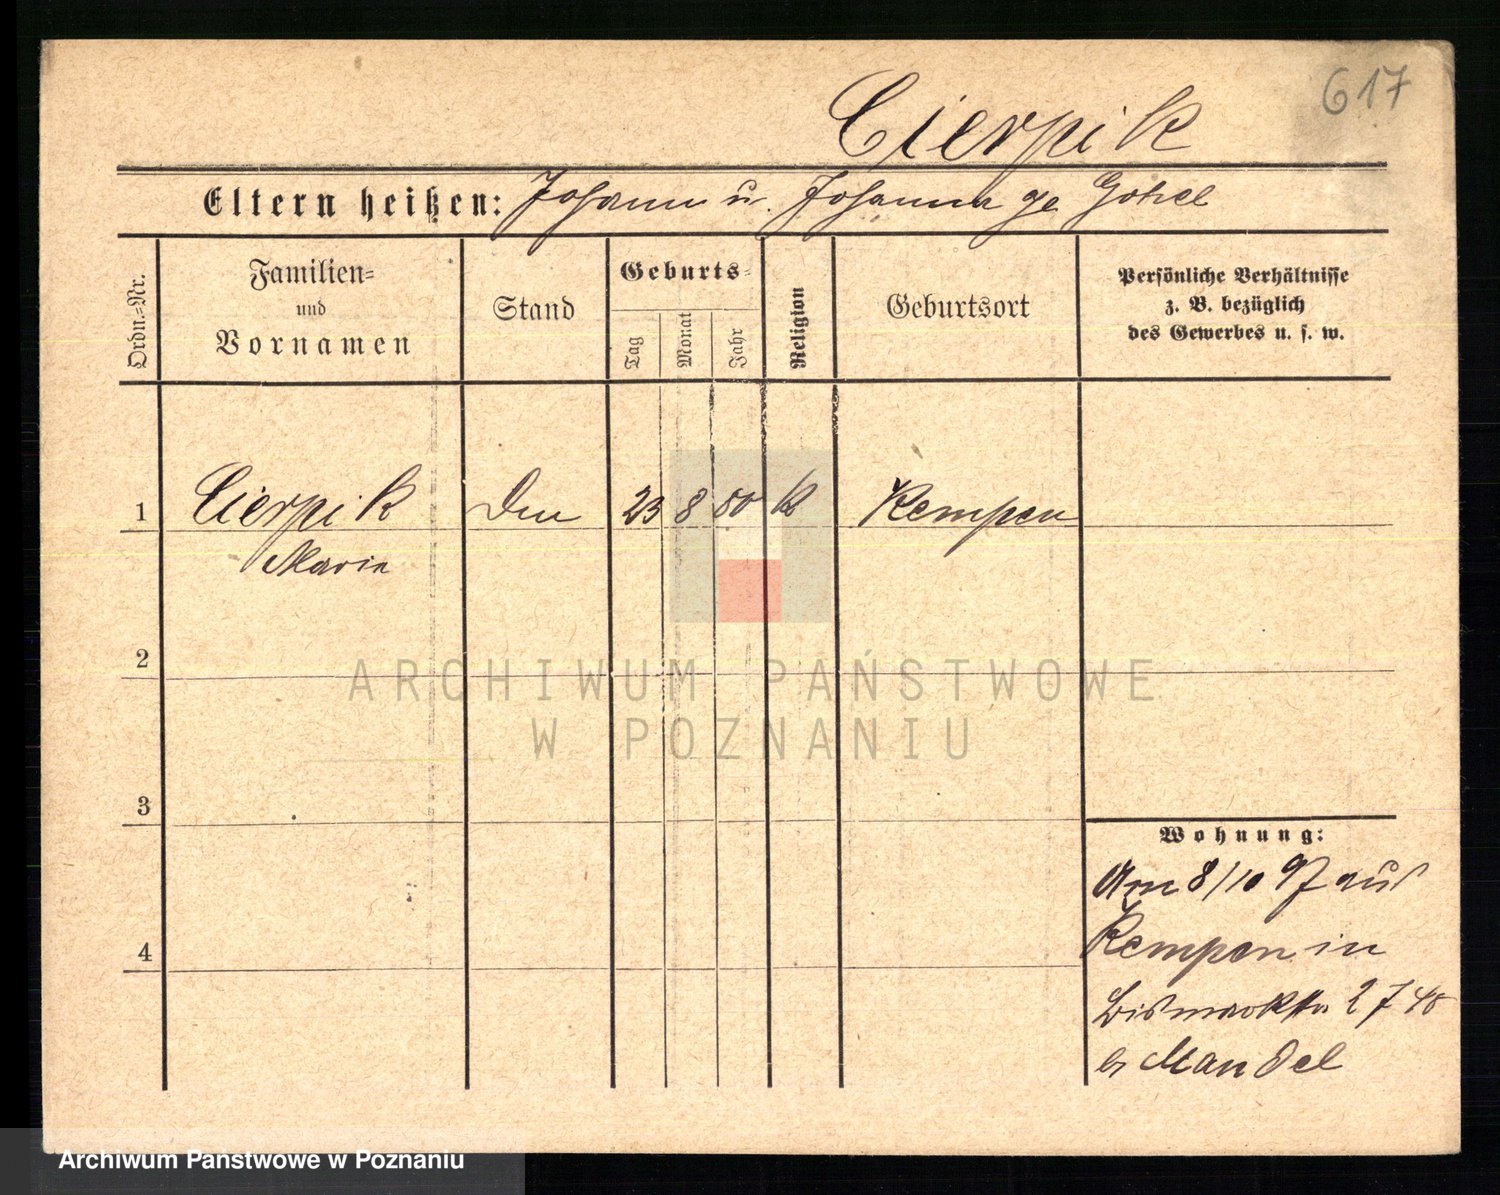 617
Cierpik
Eltern heißen: Johann u. Johanna ge
Ordn.-Nr.
Familien-
und
Vornamen
Stand
Geburts-
Tag
Monat
Jahr
Religion
Geburtsort
Persönliche Verhältnisse
z. B. bezüglich
des Gewerbes u. s. w.
1 Cierpik 23 8 80 k Kempen
Marie
2
ARCHIWUM PAŃSTWOWE
W POZNANIU
3
Wohnung:
Am 8/10 97 aus
4
Kempen in
Bismarckstr
b Mandel
Archiwum Państwowe w Poznaniu